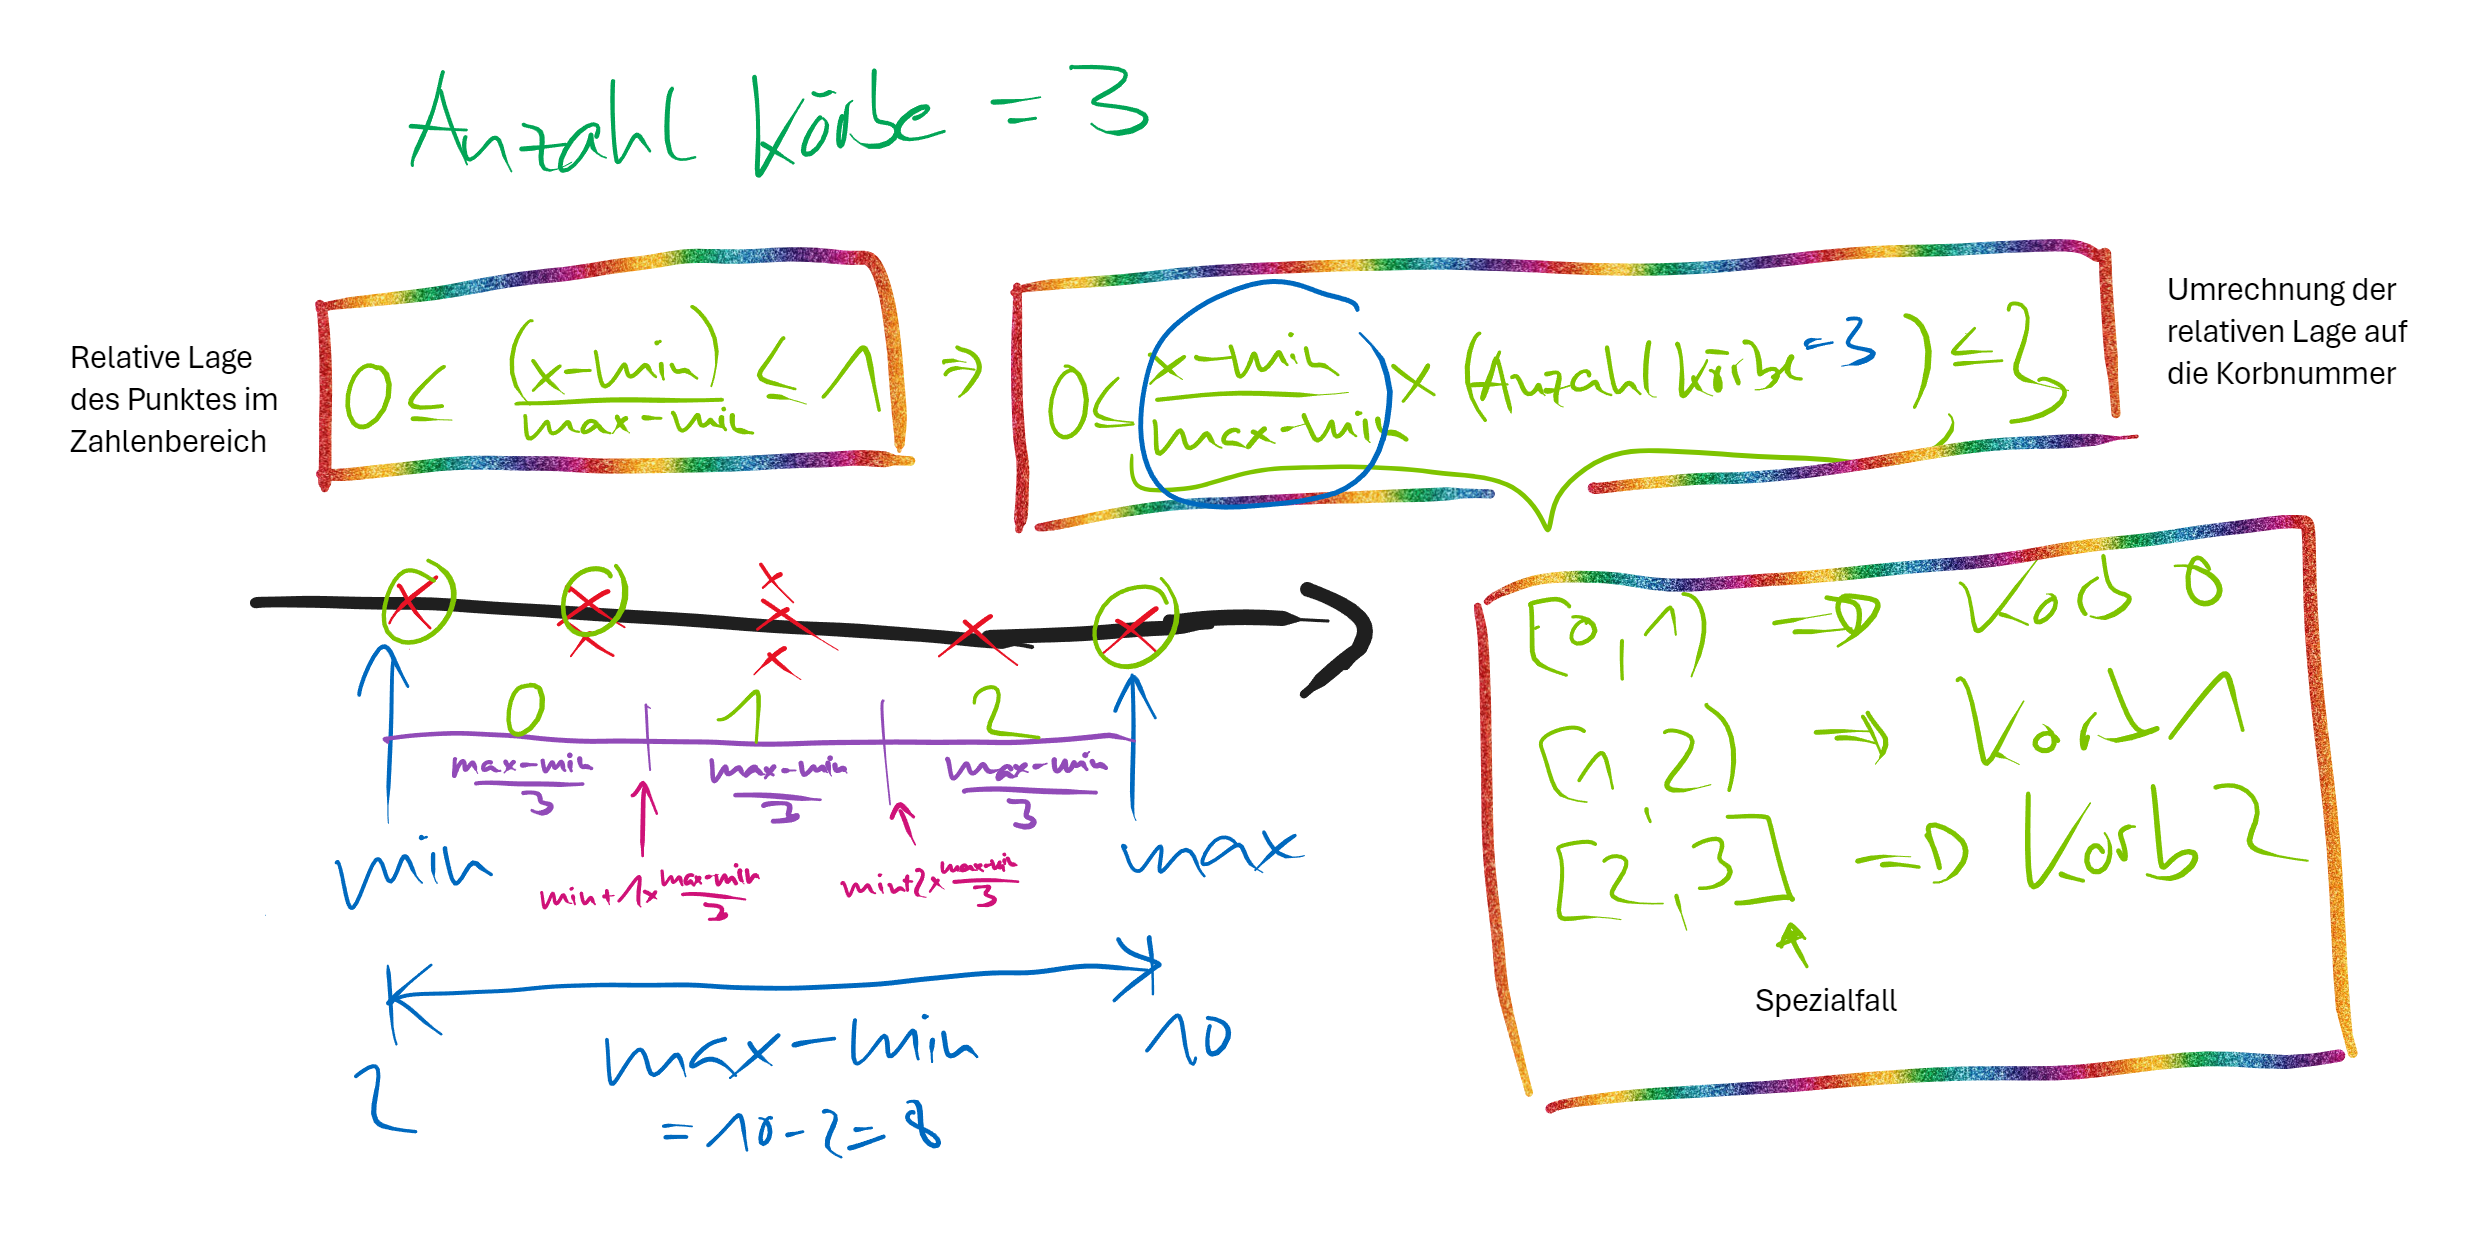 Anzahl Körbe = 3
Relative Lage
des Punktes im
Zahlenbereich
0 ≤ (x-min) / max-min ≤ 1 ⇒ 0 ≤ x-min / max-min × (Anzahl Körbe = 3) ≤ 3
Umrechnung der
relativen Lage auf
die Korbnummer
0 1 2
max-min / 3 max-min / 3 max-min / 3
min max
min + 1 × max-min / 3 min + 2 × max-min / 3
max-min
2 10
= 10 - 2 = 8
[0, 1) ⇒ Korb 0
[1, 2) ⇒ Korb 1
[2, 3] ⇒ Korb 2
Spezialfall